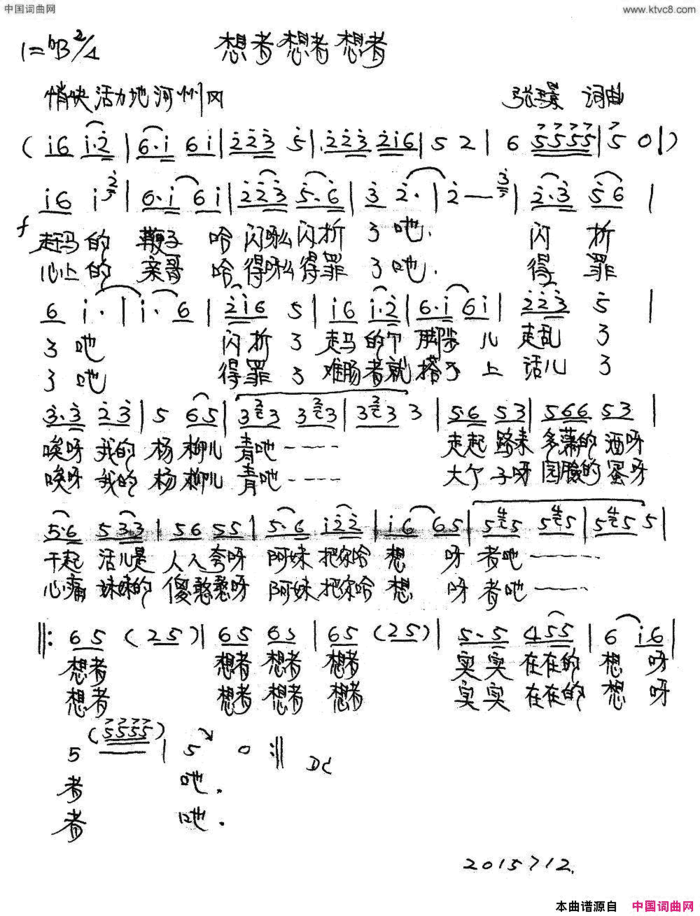 中国词曲网 www.ktvc8.com
1=♭B 2/4 想者想者想者
悄快活力地河州风 张 词曲
( i6 i·2 | 6·i 6i | 223 5 | 223 216 | 5 2 | 6 5555 | 5 0 | )
f i6 i 2 | 6·i 6i | 223 5·6 | 3 2· | 2 — 3 | 2·3 56 |
赶马的 鞭子 哈 闪呀么闪折 了吔. 闪 折
心上的 亲哥 哈 得呀么得罪 了吔. 得 罪
6 i· | i· 6 | 2i6 5 | i6 i·2 | 6·i 6i | 223 5 |
了 吔 闪折 了 赶马的个 脚步 儿 走乱 了
了 吔 得罪 了 难肠者就 搭不 上 话儿 了
3·3 23 | 5 65 | 323 323 | 323 3 | 56 53 | 566 53 |
唉呀 我的 杨柳儿 青吔 ---- 走起 路来 多藩的 洒呀
唉呀 我的 杨 柳儿 青吔 ---- 大个 子呀 团脸的 蛮呀
5·6 533 | 56 55 | 5·6 i22 | i6 65 | 545 545 | 545 5 |
干起 活儿是 人人夸呀 阿妹 把你哈 想 呀 者吔 ----
心痛 妹妹的 傻憨憨呀 阿妹 把你哈 想 呀 者吔 ----
‖: 65 ( 25 ) | 65 65 | 65 (25) | 5·5 455 | 6 i6 |
想者 想者 想者 想者 实实 在在的 想 呀
想者 想者 想者 想者 实实 在在的 想 呀
5 (5555) | 5 0 :‖ DC
者 吔.
者 吔.
2015712.
本曲谱源自 中国词曲网